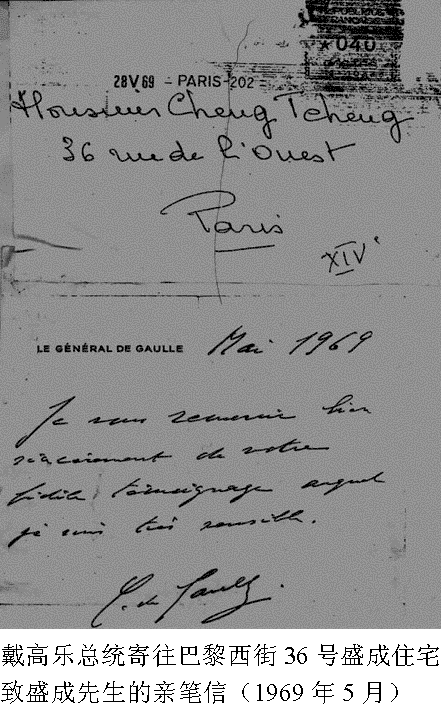 ★ 040
28V69 - PARIS-202
Monsieur Cheng Tcheng
36 rue de l'Ouest
Paris
XIVe
LE GÉNÉRAL DE GAULLE Mai 1969
Je vous remercie bien
sincèrement de votre
fidèle témoignage auquel
je suis très sensible.
C. de Gaulle.
戴高乐总统寄往巴黎西街 36 号盛成住宅
致盛成先生的亲笔信（1969 年 5 月）